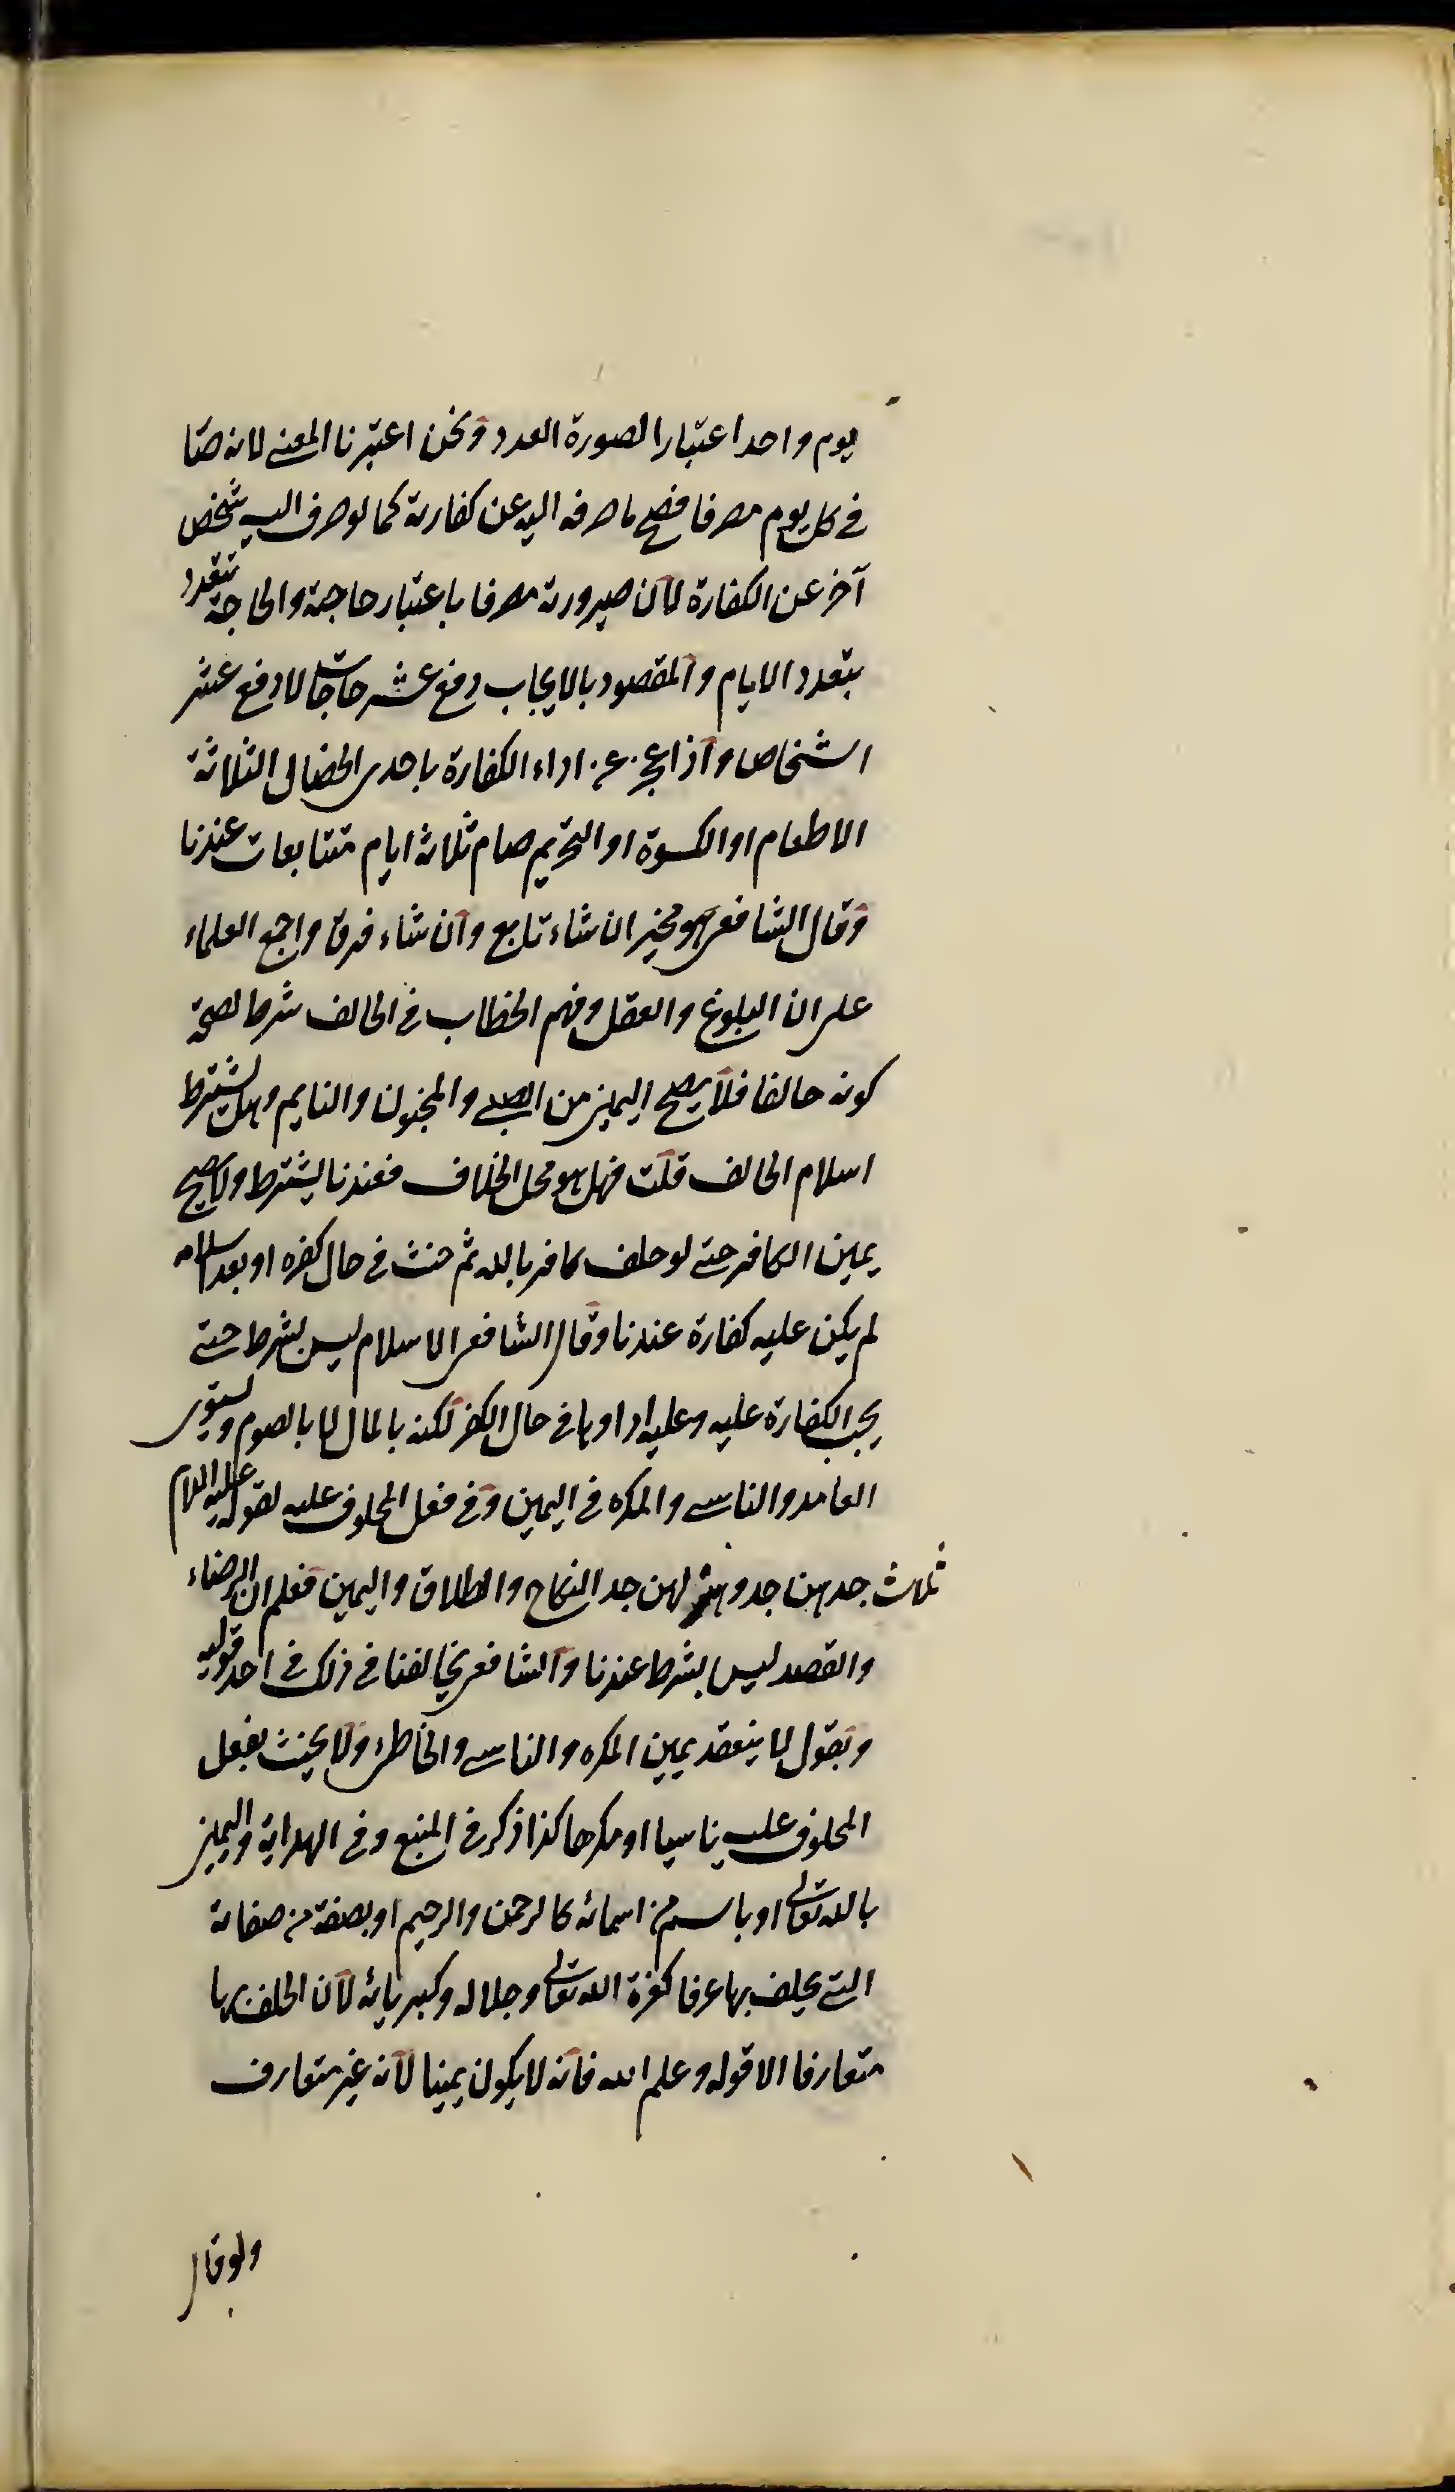 يوم واحد اعتبارا لصورة العدد ونحن اعتبرنا المعنى لانه صا
في كل يوم مصرفا فصح ما صرفه اليه عن كفارته كما لو صرف اليه شخص
آخر عن الكفارة لان صيرورته مصرفا باعتبار حاجته والحاجة تتعدد
بتعدد الايام والمقصود بالايجاب دفع عشر حاجات لا دفع عشر
اشخاص واذا عجز عن اداء الكفارة باحدى الخصال الثلاثة
الاطعام او الكسوة او التحريم صام ثلاثة ايام متتابعات عندنا
وقال الشافعى هو مخير ان شاء تابع وان شاء فرق واجمع العلماء
على ان البلوغ والعقل وفهم الخطاب في الحالف شرط لصحة
كونه حالفا فلا يصح اليمين من الصبى والمجنون والنايم وهل يشترط
اسلام الحالف قلت فهل هو محل الخلاف فعندنا يشترط ولا يصح
يمين الكافر حتى لو حلف كافر بالله ثم حنث في حال كفره او بعد اسلامه
لم يكن عليه كفارة عندنا وقال الشافعى الاسلام ليس بشرط حتى
يجب الكفارة عليه وعليه اداوها في حال الكفر لكنه بالمال لا بالصوم ويستوى
العامد والناسى والمكره في اليمين وفي فعل المحلوف عليه لقوله عليه السلام
ثلاث جدهن جد وهزلهن جد النكاح والطلاق واليمين فعلم ان الرضاء
والقصد ليس بشرط عندنا والشافعى يخالفنا في ذلك في احد قوليه
ويقول لا ينعقد يمين المكره والناسى والخاطئ ولا يحنث بفعل
المحلوف عليه ناسيا او مكرها كذا ذكر في المنبع وفي الهداية واليمين
بالله تعالى او باسم من اسمائه كالرحمن والرحيم او بصفة من صفاته
التى يحلف بها عرفا كعزة الله تعالى وجلاله وكبريائه لان الحلف بها
متعارفا الا قوله وعلم الله فانه لا يكون يمينا لانه غير متعارف
ولو قال